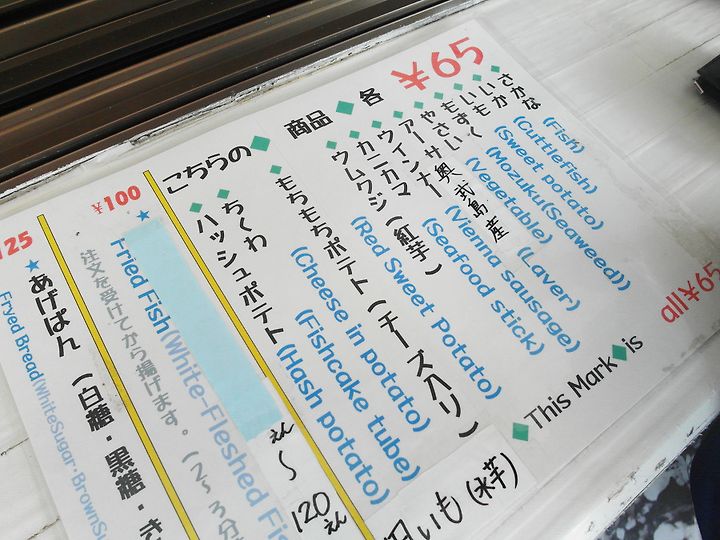 こちらの◆ 商品◆各 ¥65
◆さかな (Fish)
◆いか (Cuttlefish)
◆いも (Sweet potato)
◆もずく (Mozuku(Seaweed))
◆やさい (Vegetable)
◆アーサ 奥武島産 (Laver)
◆ウインナー (Vienna sausage)
◆カニカマ (Seafood stick)
◆ウムクジ(紅芋) (Red Sweet Potato)
◆もちもちポテト(チーズ入り) (Cheese in potato)
◆ちくわ (Fishcake tube)
◆ハッシュポテト (Hash potato)
◆This Mark◆is all¥65
いも(水芋)
¥100
★
Fried Fish(White-Fleshed Fi
注文を受けてから揚げます。(2~3分
えん
~
120えん
125
★あげぱん (白糖・黒糖・き
Fryed Bread(WhiteSugar・BrownSu